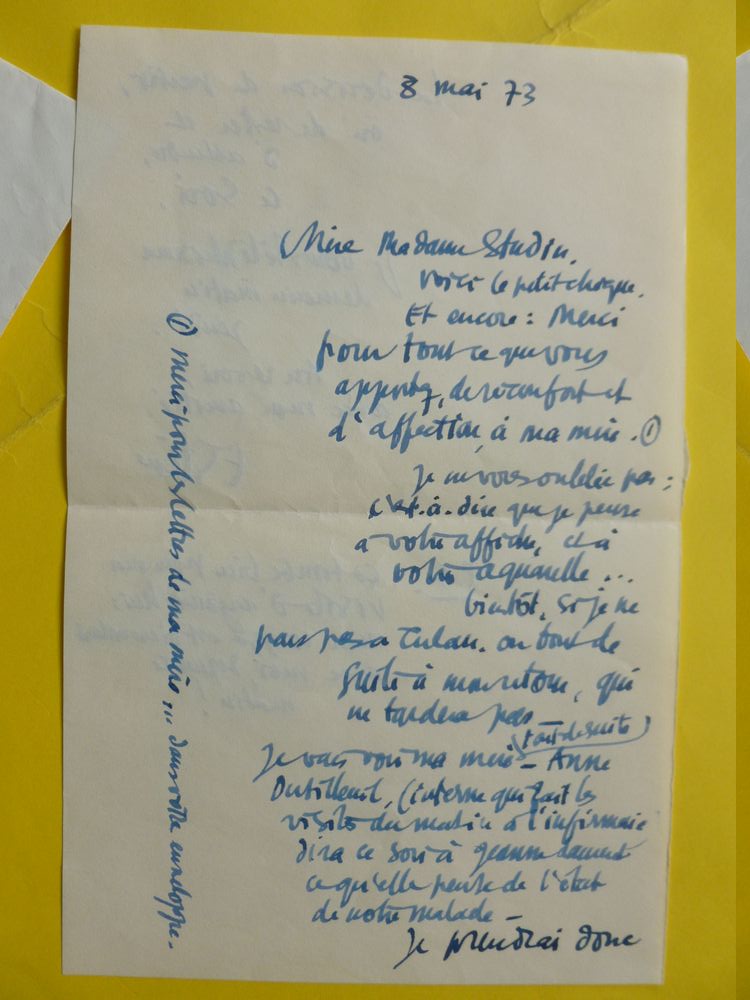 8 mai 73
Madame Studin,
voici le petit chèque.
Et encore : Merci
pour tout ce que vous
apportez, de réconfort et
d'affection, à ma mère. ①
Je ne vous oublie pas :
c'est-à-dire que je pense
à votre affiche, et à
votre aquarelle ...
bientôt, si je ne
pars pas à Tulau. ou tout de
suite à mon retour, qui
ne tardera pas —
Je vais voir ma mère (tout de suite) — Anne
Dutilleul, (interne qui fait les
visites du matin à l'infirmerie
dira ce soir à
ce qu'elle pense de l'état
de notre malade —
Je prendrai donc
① merci pour les lettres de ma mère ... dans votre enveloppe.